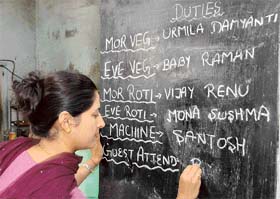 DUTIES
MOR VEG - URMILA DAMYANTI
EVE VEG - BABY RAMAN
MOR ROTI - VIJAY RENU
EVE ROTI - MONA SUSHMA
MACHINE - SANTOSH
GUEST ATTEND -